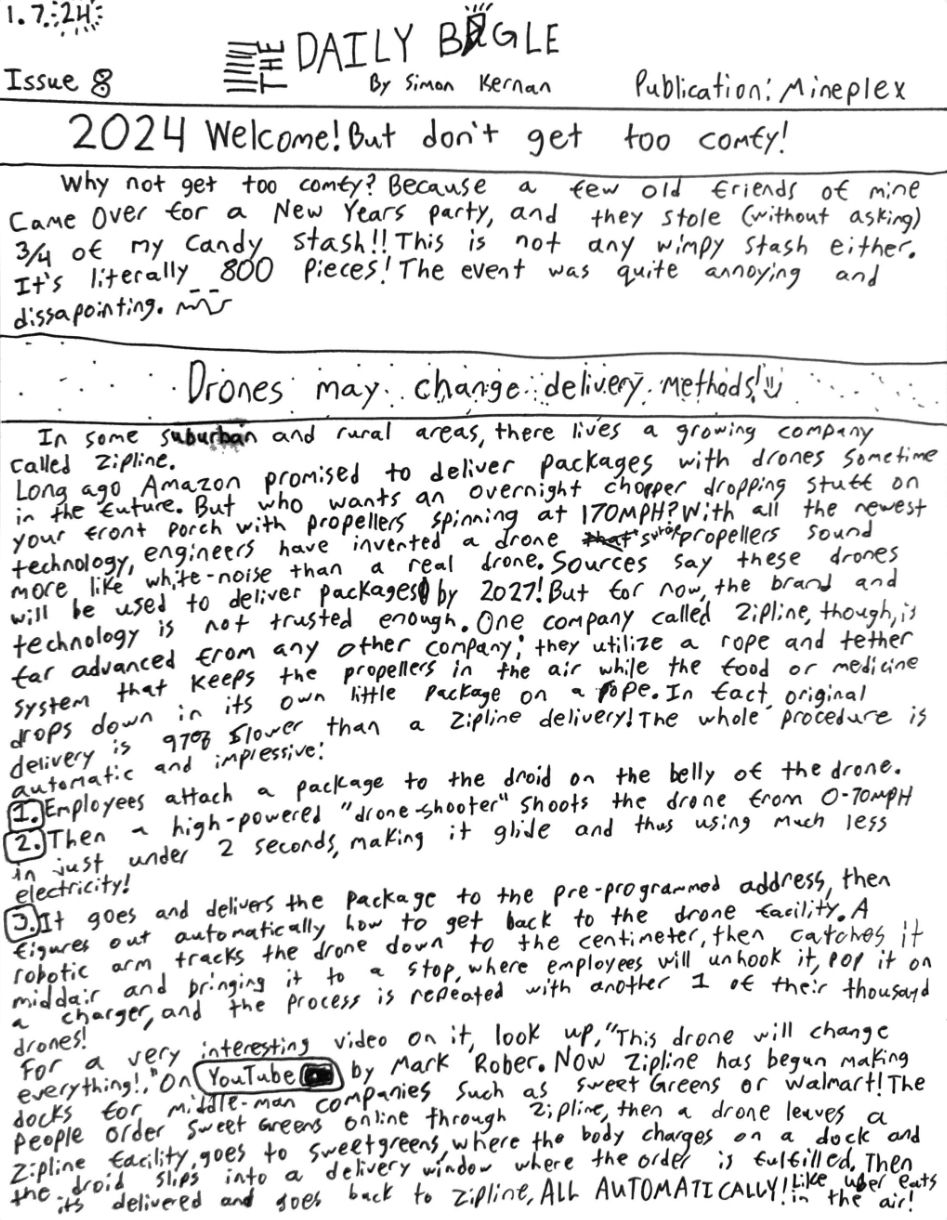 1.7.24
THE DAILY BUGLE
Issue 8
By Simon Kernan
Publication: Mineplex
2024 Welcome! But don't get too comfy!
Why not get too comfy? Because a few old friends of mine
Came Over for a New Years party, and they stole (without asking)
3/4 of my Candy stash!! This is not any wimpy stash either.
It's literally 800 pieces! The event was quite annoying and
dissapointing.
Drones may change delivery methods!
In some suburban and rural areas, there lives a growing company
called Zipline.
Long ago Amazon promised to deliver packages with drones sometime
in the future. But who wants an overnight chopper dropping stuff on
your front porch with propellers spinning at 170MPH? With all the newest
technology, engineers have invented a drone propellers sound
more like white-noise than a real drone. Sources say these drones
will be used to deliver packages by 2027! But for now, the brand and
technology is not trusted enough. One company called Zipline, though, is
far advanced from any other company; they utilize a rope and tether
system that keeps the propellers in the air while the food or medicine
drops down in its own little package on a rope. In fact, original
delivery is 97% slower than a Zipline delivery! The whole procedure is
automatic and impressive:
1. Employees attach a package to the droid on the belly of the drone.
2. Then a high-powered "drone-shooter" shoots the drone from 0-70MPH
in just under 2 seconds, making it glide and thus using much less
electricity!
3. It goes and delivers the package to the pre-programmed address, then
figures out automatically how to get back to the drone facility. A
robotic arm tracks the drone down to the centimeter, then catches it
middair and bringing it to a stop, where employees will unhook it, pop it on
a charger, and the process is repeated with another 1 of their thousand
drones!
For a very interesting video on it, look up, "This drone will change
everything!," On YouTube by Mark Rober. Now Zipline has begun making
docks for middle-man companies such as sweet Greens or Walmart! The
people order Sweet Greens online through Zipline, then a drone leaves a
Zipline facility, goes to Sweetgreens, where the body charges on a dock and
the droid slips into a delivery window where the order is fulfilled. Then
its delivered and goes back to Zipline, ALL AUTOMATICALLY! Like uber eats
in the air!